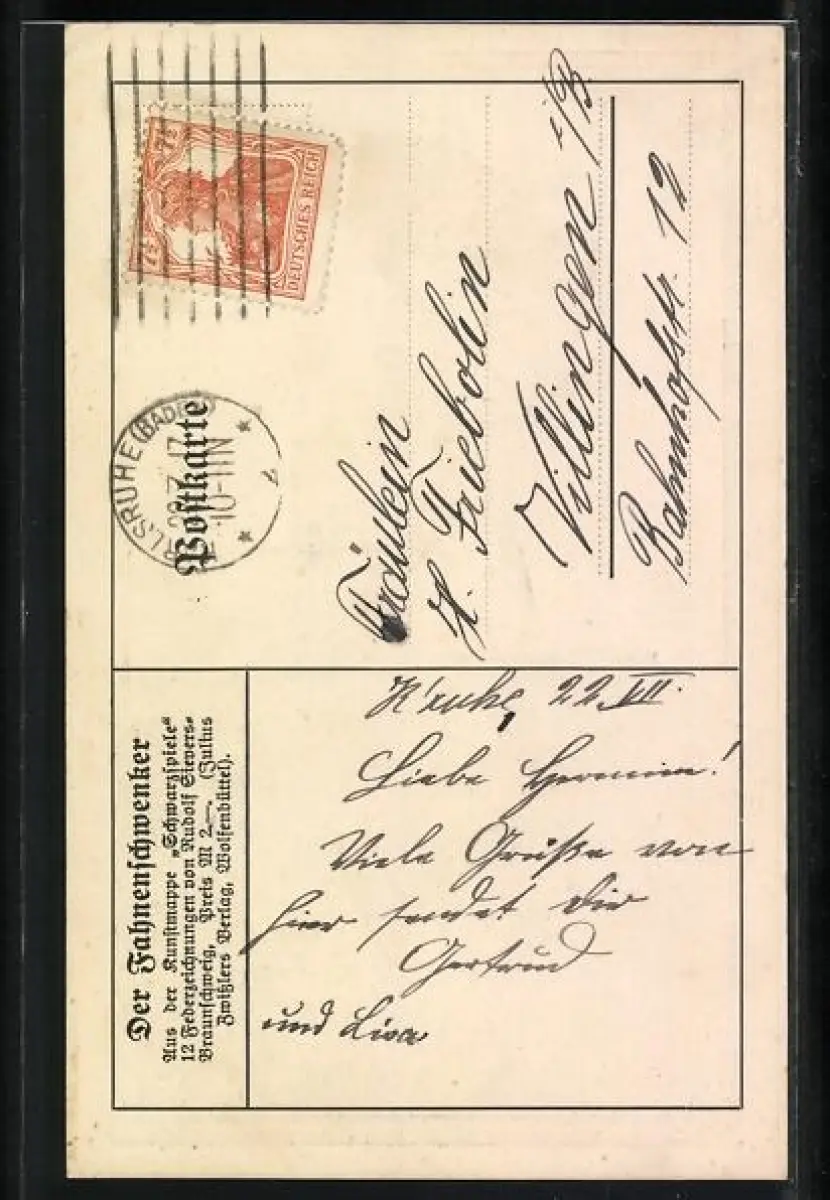 Der Fahnenschwenker
Aus der Kunstmappe „Schwarzspiele“
12 Federzeichnungen von Rudolf Sievers-
Braunschweig, Preis M 2.—. (Julius
Zwißlers Verlag, Wolfenbüttel).
K'ruhe, 22. VII.
Liebe Hermine!
Viele Grüße von
hier sendet dir
Gertrud
und
Postkarte
RLSRUHE (BADEN)
17
10-11N
7½ 7½
DEUTSCHES REICH
Fräulein
H. Friebolin
Villingen i/B.
Bahnhofstr. 12